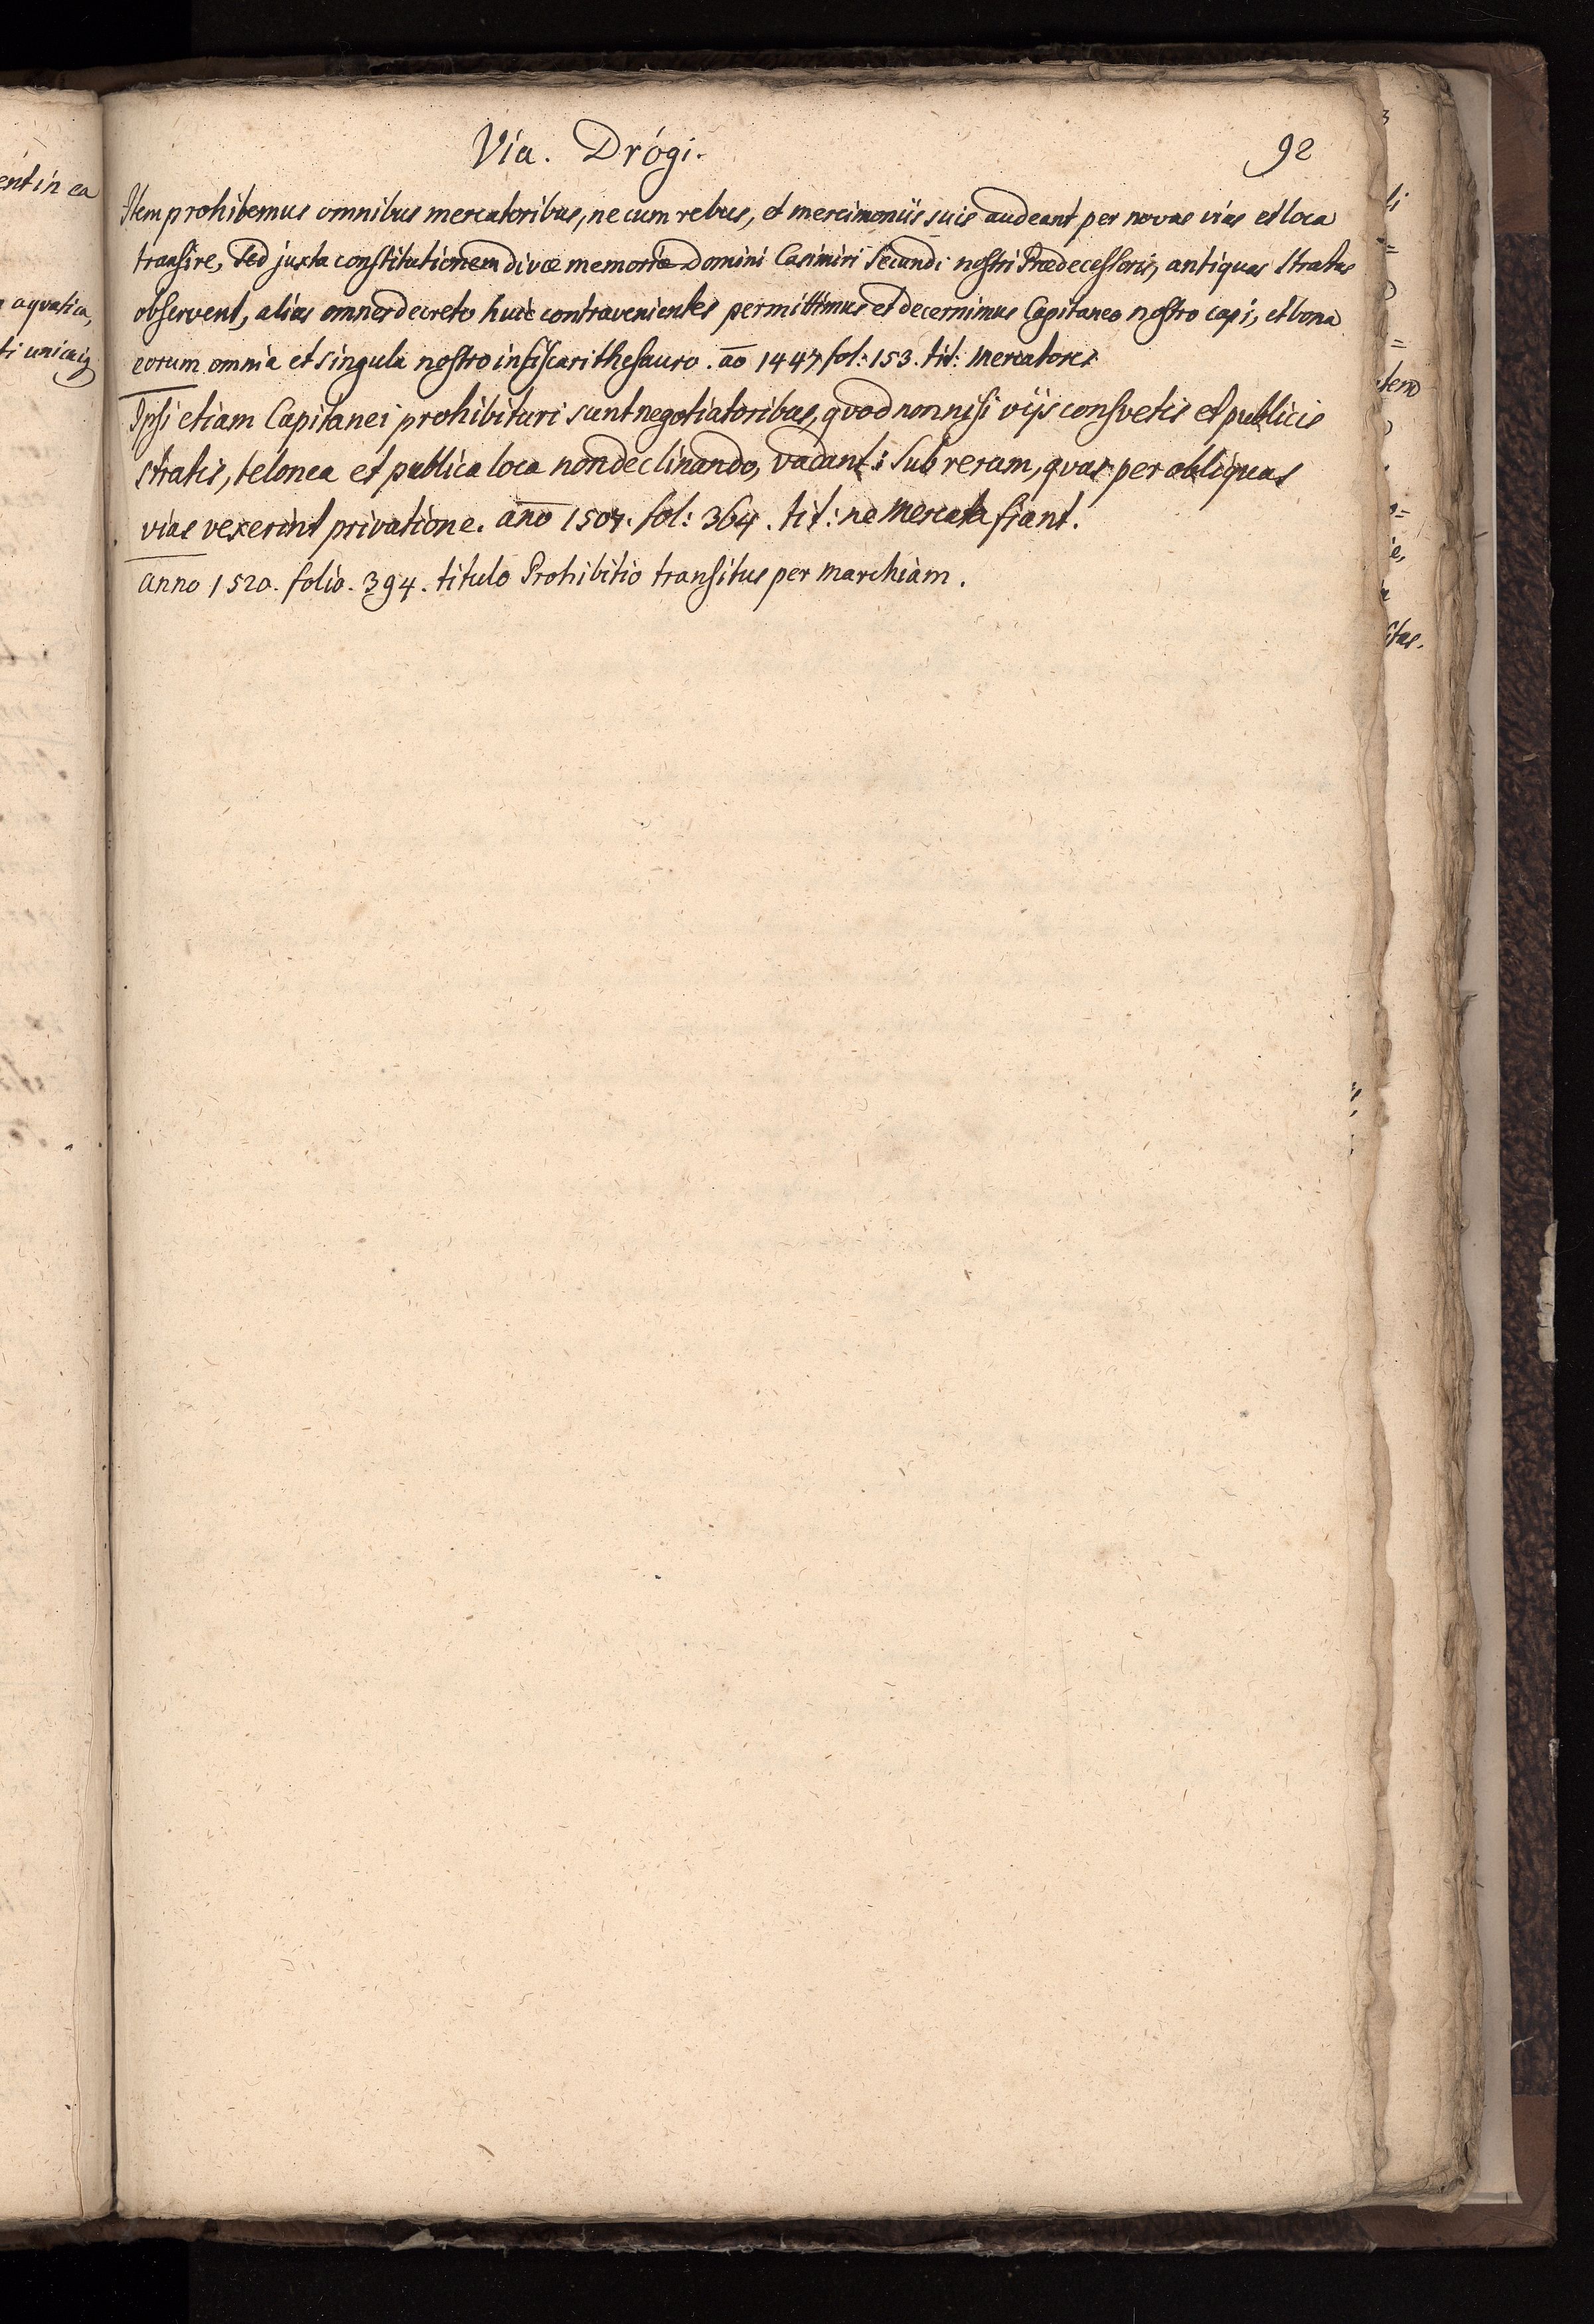 Via. Drógi.
92
Item prohibemus omnibus mercatoribus, ne cum rebus, et mercimoniis suis audeant per novas vias et loca
transire, Sed juxta constitutionem divæ memoriæ Domini Casimiri Secundi nostri Prædecessoris, antiquas Stratas
observent, alias omnes decreto huic contravenientes permittimus et decernimus Capitaneo nostro capi, et bona
eorum omnia et singula nostro infiscari thesauro. ao 1447 fol: 153. tit: Mercatores
Ipsi etiam Capitanei prohibituri sunt negotiatoribus, qvod non nisi vijs consvetis et publicis
stratis, telonea et publica loca non declinando, vadant: Sub rerum, qvas per obliquas
vias vexerint privatione. año 1507. fol: 364. tit: ne Mercata fiant.
Anno 1520. folio. 394. titulo Prohibitio transitus per Marchiam.
ent in ea
aqvatica,